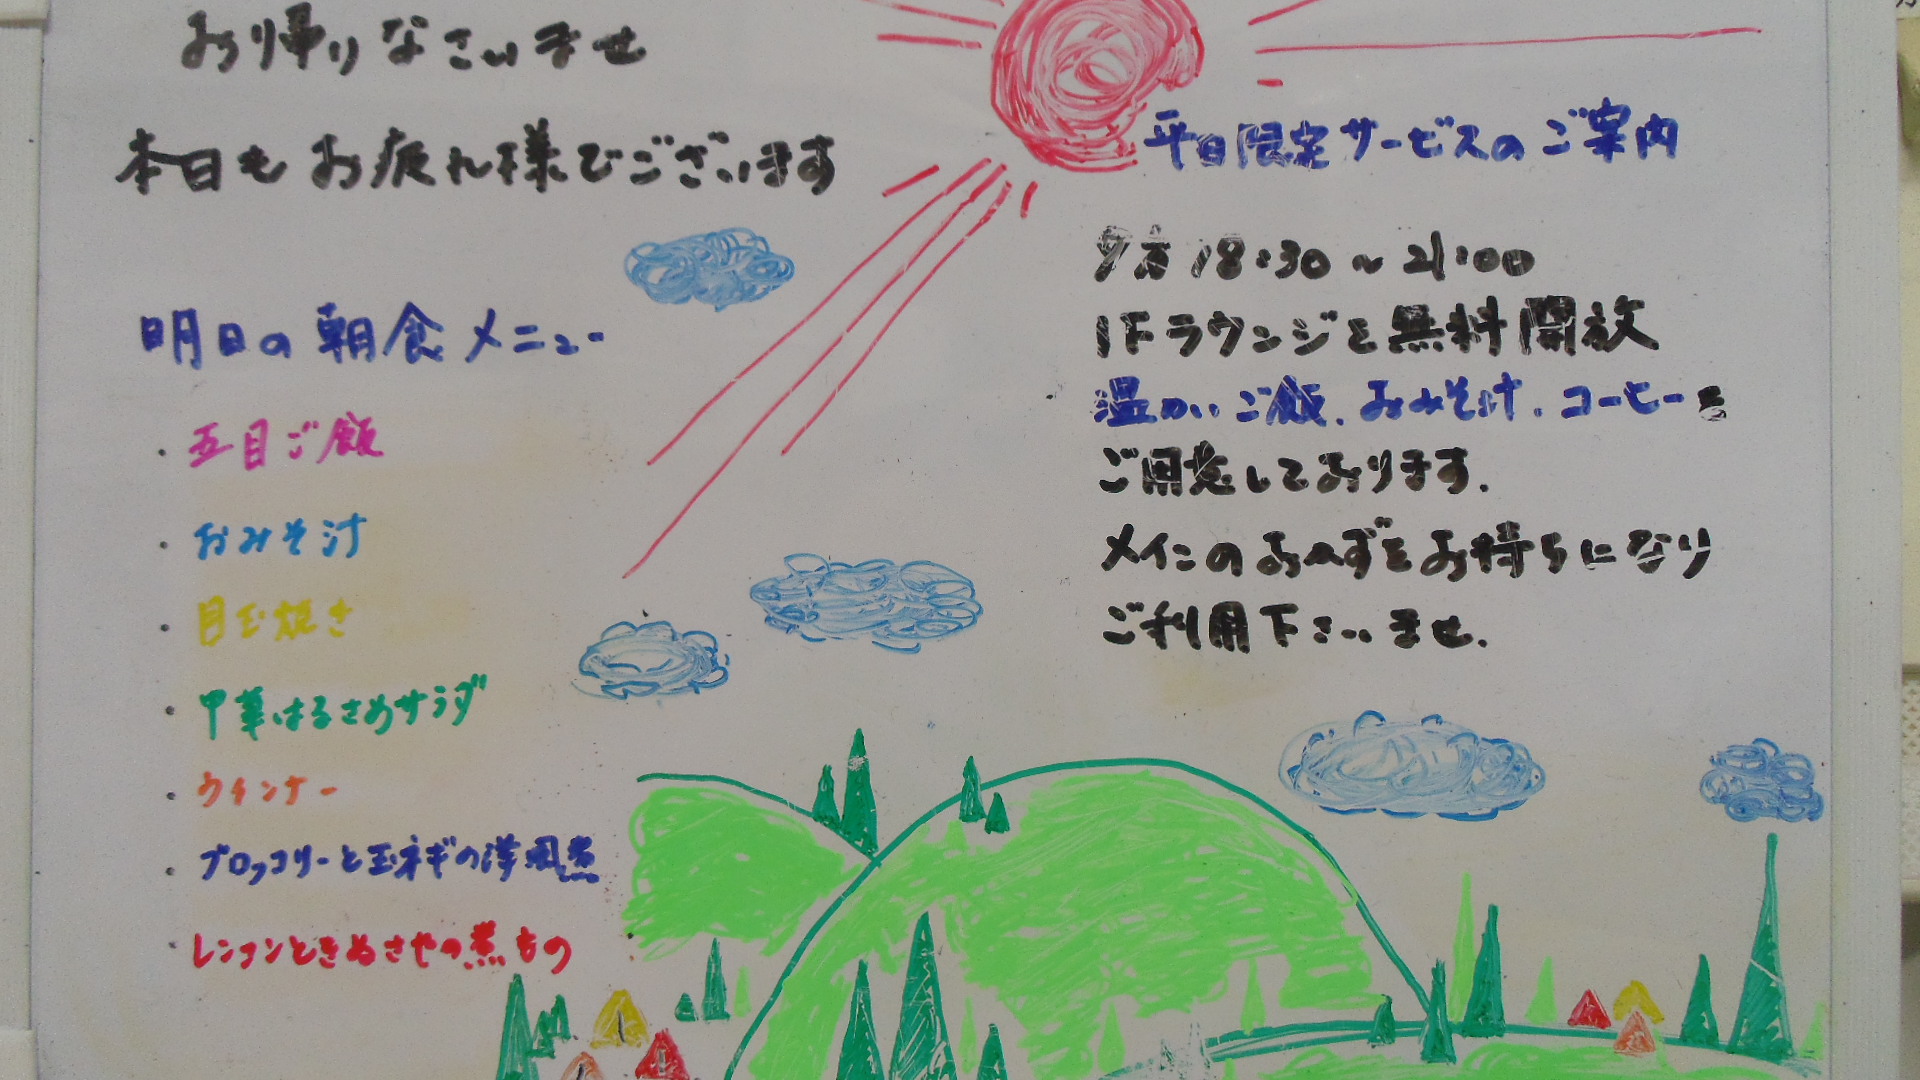 お帰りなさいませ
本日もお疲れ様でございます
明日の朝食メニュー
・五目ご飯
・おみそ汁
・目玉焼き
・中華はるさめサラダ
・ウインナー
・ブロッコリーと玉ネギの洋風煮
・レンコンときぬさやの煮もの
平日限定サービスのご案内
夕方18:30～21:00
1Fラウンジを無料開放
温かいご飯、おみそ汁、コーヒーを
ご用意しております。
メインのおかずをお持ちになり
ご利用下さいませ。